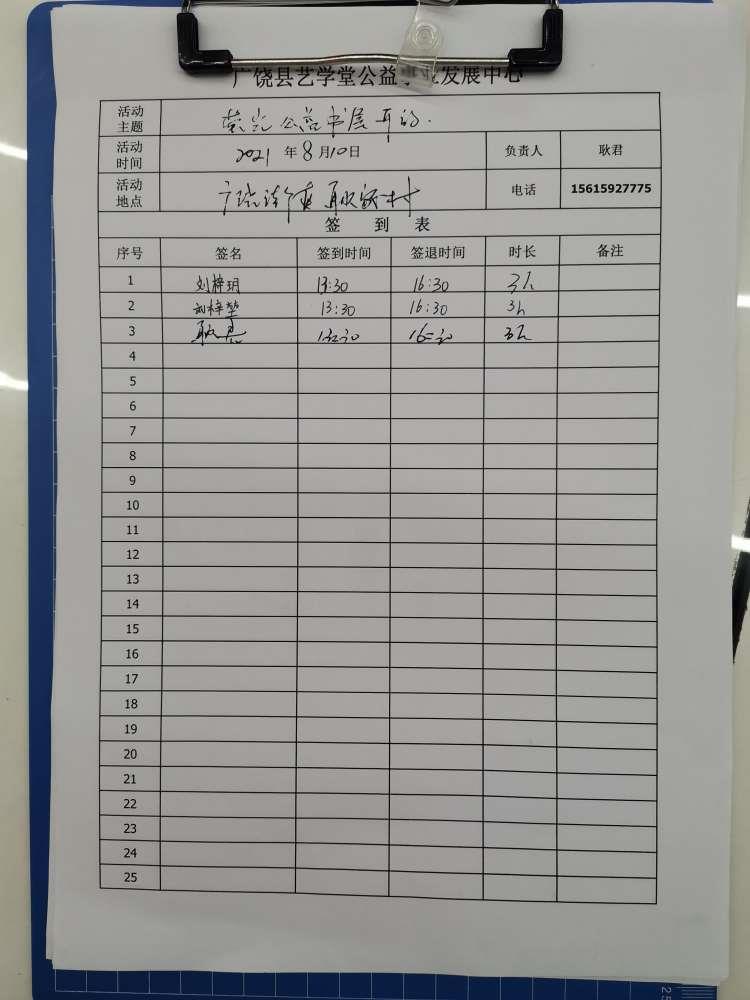 广饶县艺学堂公益事业发展中心
活动主题 萤光公益书屋开放.
活动时间 2021年8月10日 负责人 耿君
活动地点 广饶 村 电话 15615927775
签 到 表
序号 签名 签到时间 签退时间 时长 备注
1 刘梓玥 13:30 16:30 3h
2 刘梓堃 13:30 16:30 3h
3 13:30 16:30 3h
4
5
6
7
8
9
10
11
12
13
14
15
16
17
18
19
20
21
22
23
24
25